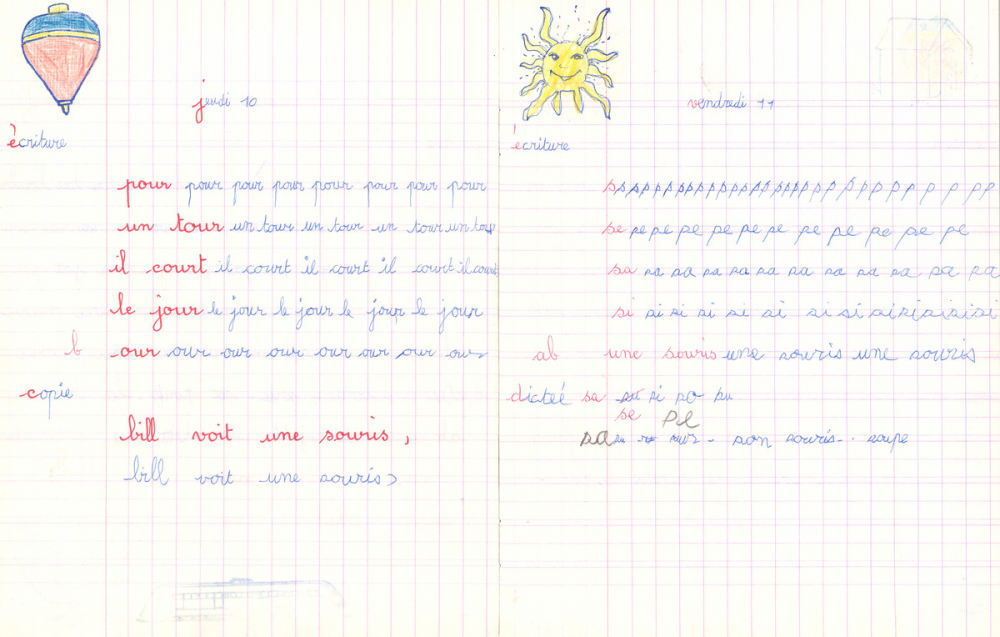 jeudi 10
écriture
pour pour pour pour pour pour pour pour
un tour un tour un tour un tour un tour
il court il court il court il court il court
le jour le jour le jour le jour le jour
b our our our our our our our our
copie
bill voit une souris,
bill voit une souris
vendredi 11
écriture
se pe pe pe pe pe pe pe pe pe pe pe
sa sa sa sa sa sa sa sa sa sa sa sa
si si si si si si si si si si si si
ab une souris une souris une souris
dicteé sa si so su
se pe
sa su son souris soupe